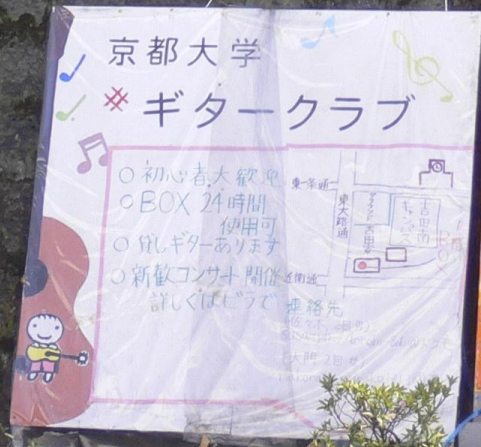 京都大学
ギタークラブ
○初心者大歓迎
○BOX 24時間
使用可
○貸しギターあります
○新歓コンサート開催
詳しくはビラで
東一条通
東大路通
グラウンド
吉田寮
吉田南
キャンパス
近衛通
連絡先